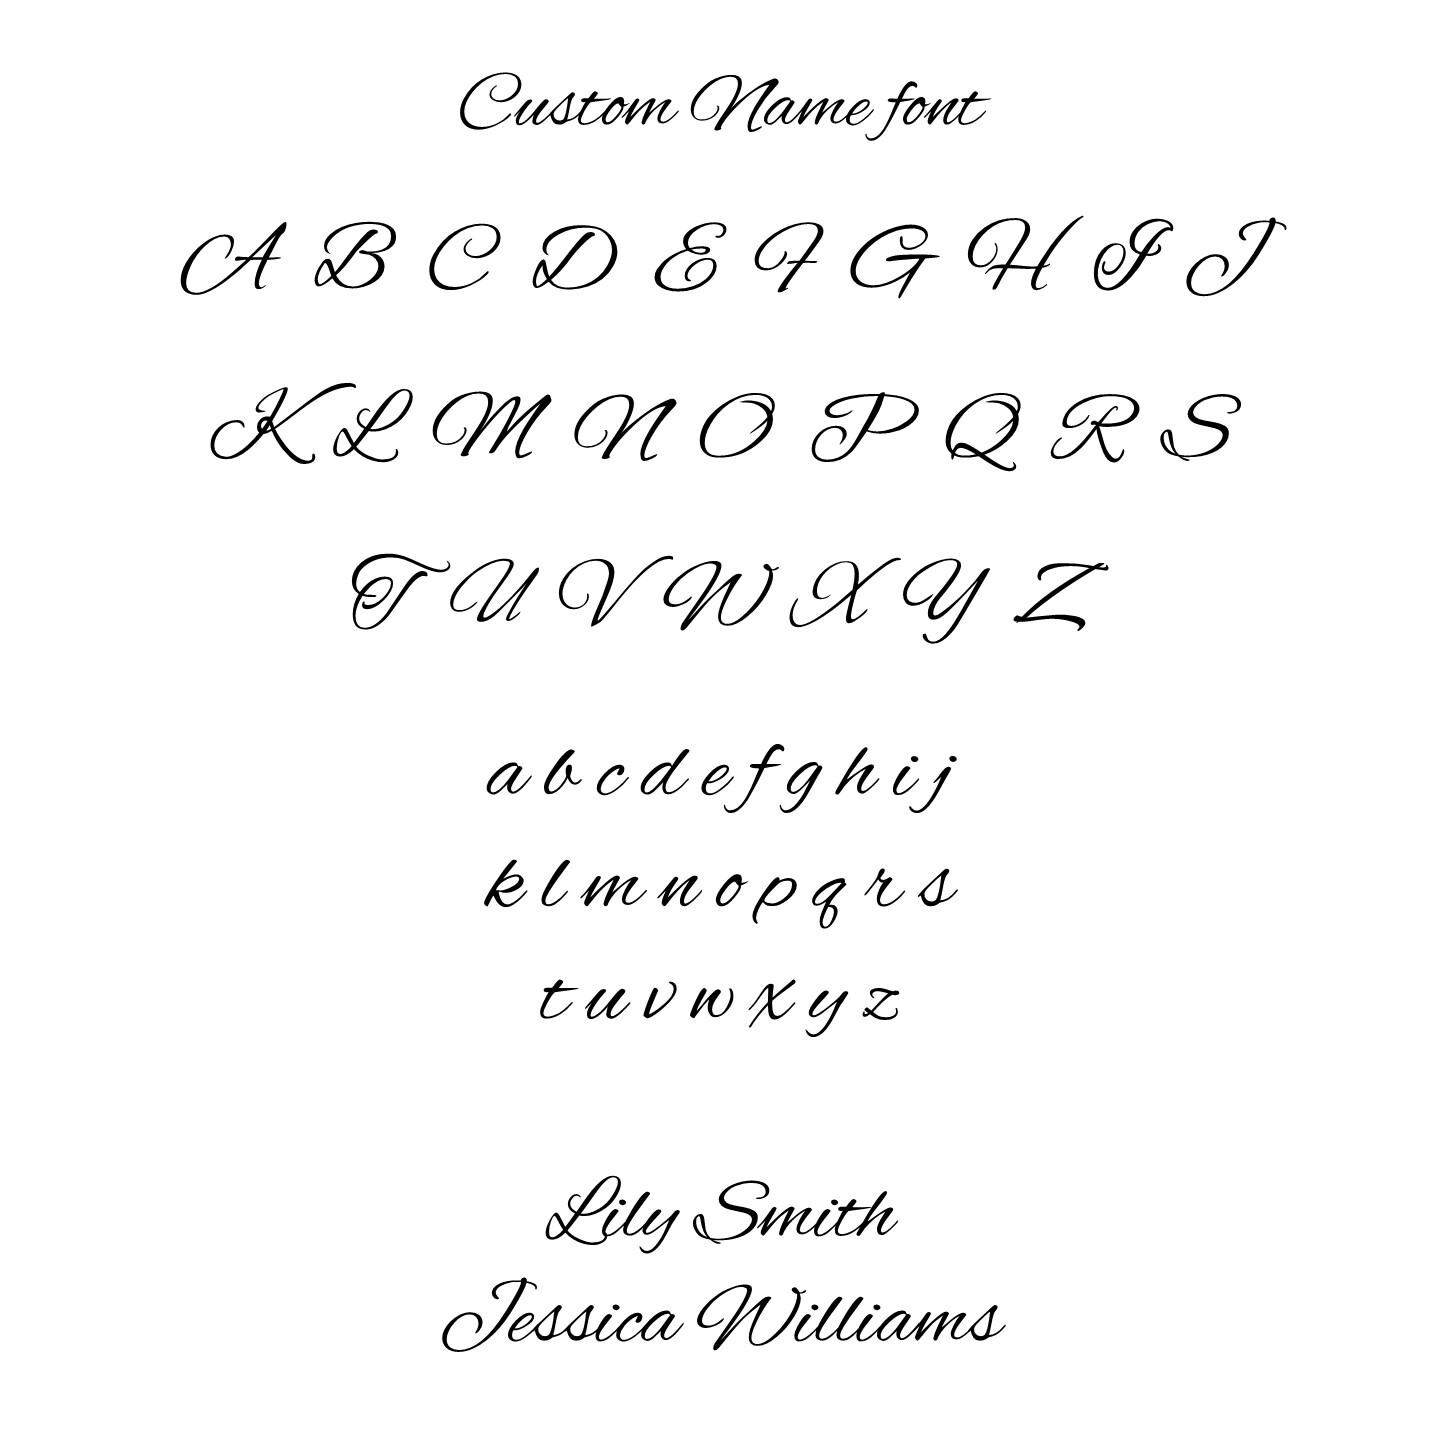 Custom Name font
A B C D E F G H I J
K L M N O P Q R S
T U V W X Y Z
a b c d e f g h i j
k l m n o p q r s
t u v w x y z
Lily Smith
Jessica Williams